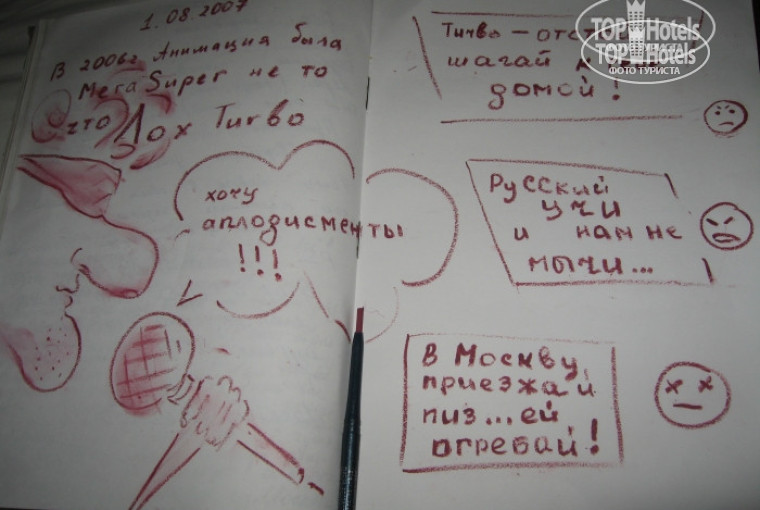 1.08.2007
В 2006г Анимация была
Мега Super не то
что Лох Turbo
хочу
аплодисменты
!!!
Тичво -
шагай
домой!
Русский
учи
и нам не
мычи...
В Москву
приезжай
пиз...ей
огребай!
TOP Hotels
TOP Hotels
ФОТО ТУРИСТА